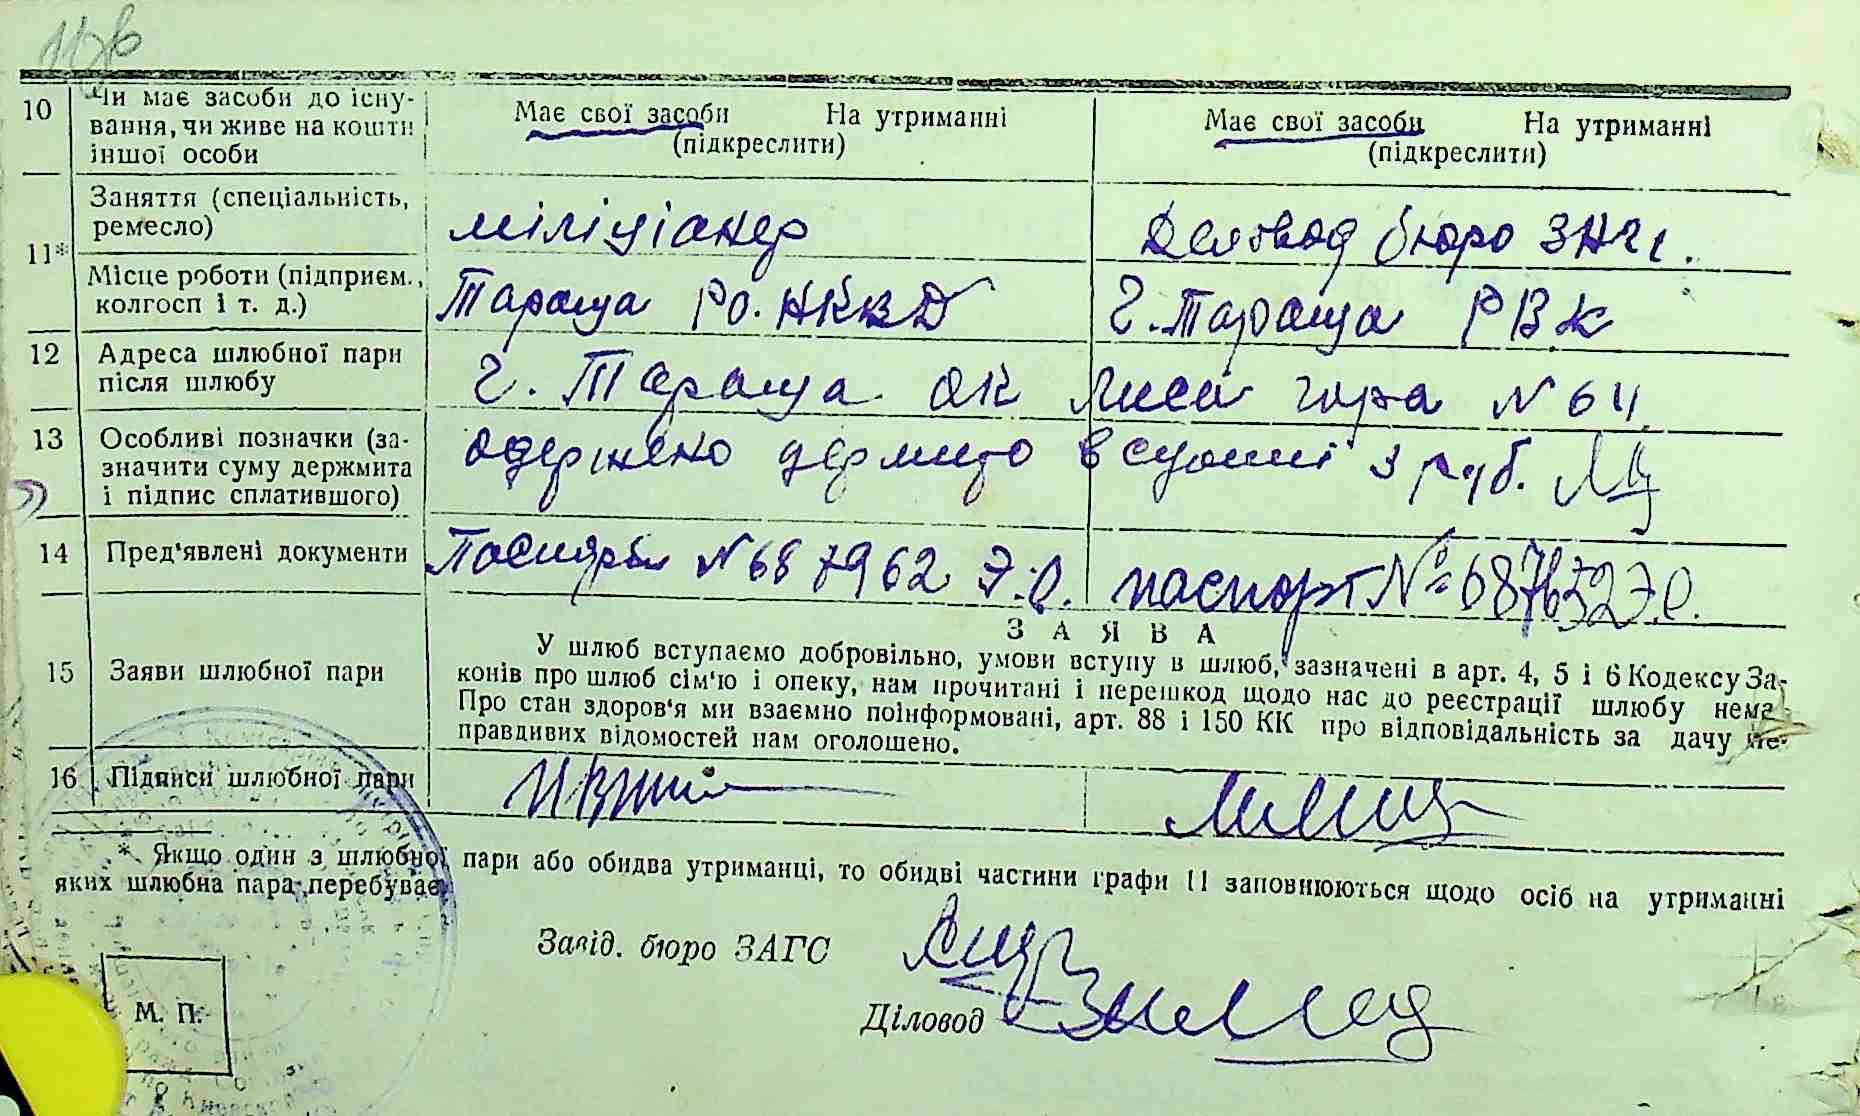 10 Чи має засоби до існу-
вання, чи живе на кошти
іншої особи
Має свої засоби На утриманні
(підкреслити)
Має свої засоби На утриманні
(підкреслити)
11* Заняття (спеціальність,
ремесло)
міліціанер
Деловод бюро
Місце роботи (підприєм.,
колгосп і т. д.)
Тараща РО. НКВД
г. Тараща РВК
12 Адреса шлюбної пари
після шлюбу
г. Тараща ок Лиса гора N 64
13 Особливі позначки (за-
значити суму держмита
і підпис сплатившого)
одержено держмито в сумі 3 руб.
14 Пред'явлені документи
Паспорт N 687962 Э.О.
паспорт № 687632 Э.О.
ЗАЯВА
15 Заяви шлюбної пари
У шлюб вступаємо добровільно, умови вступу в шлюб, зазначені в арт. 4, 5 і 6 Кодексу За-
конів про шлюб сім'ю і опеку, нам прочитані і перешкод щодо нас до реєстрації шлюбу нема
Про стан здоров'я ми взаємно поінформовані, арт. 88 і 150 КК про відповідальність за дачу не-
правдивих відомостей нам оголошено.
16 Підписи шлюбної пари
* Якщо один з шлюбної пари або обидва утриманці, то обидві частини графи 11 заповнюються щодо осіб на утриманні
яких шлюбна пара перебуває.
Завід. бюро ЗАГС
Діловод
М. П.